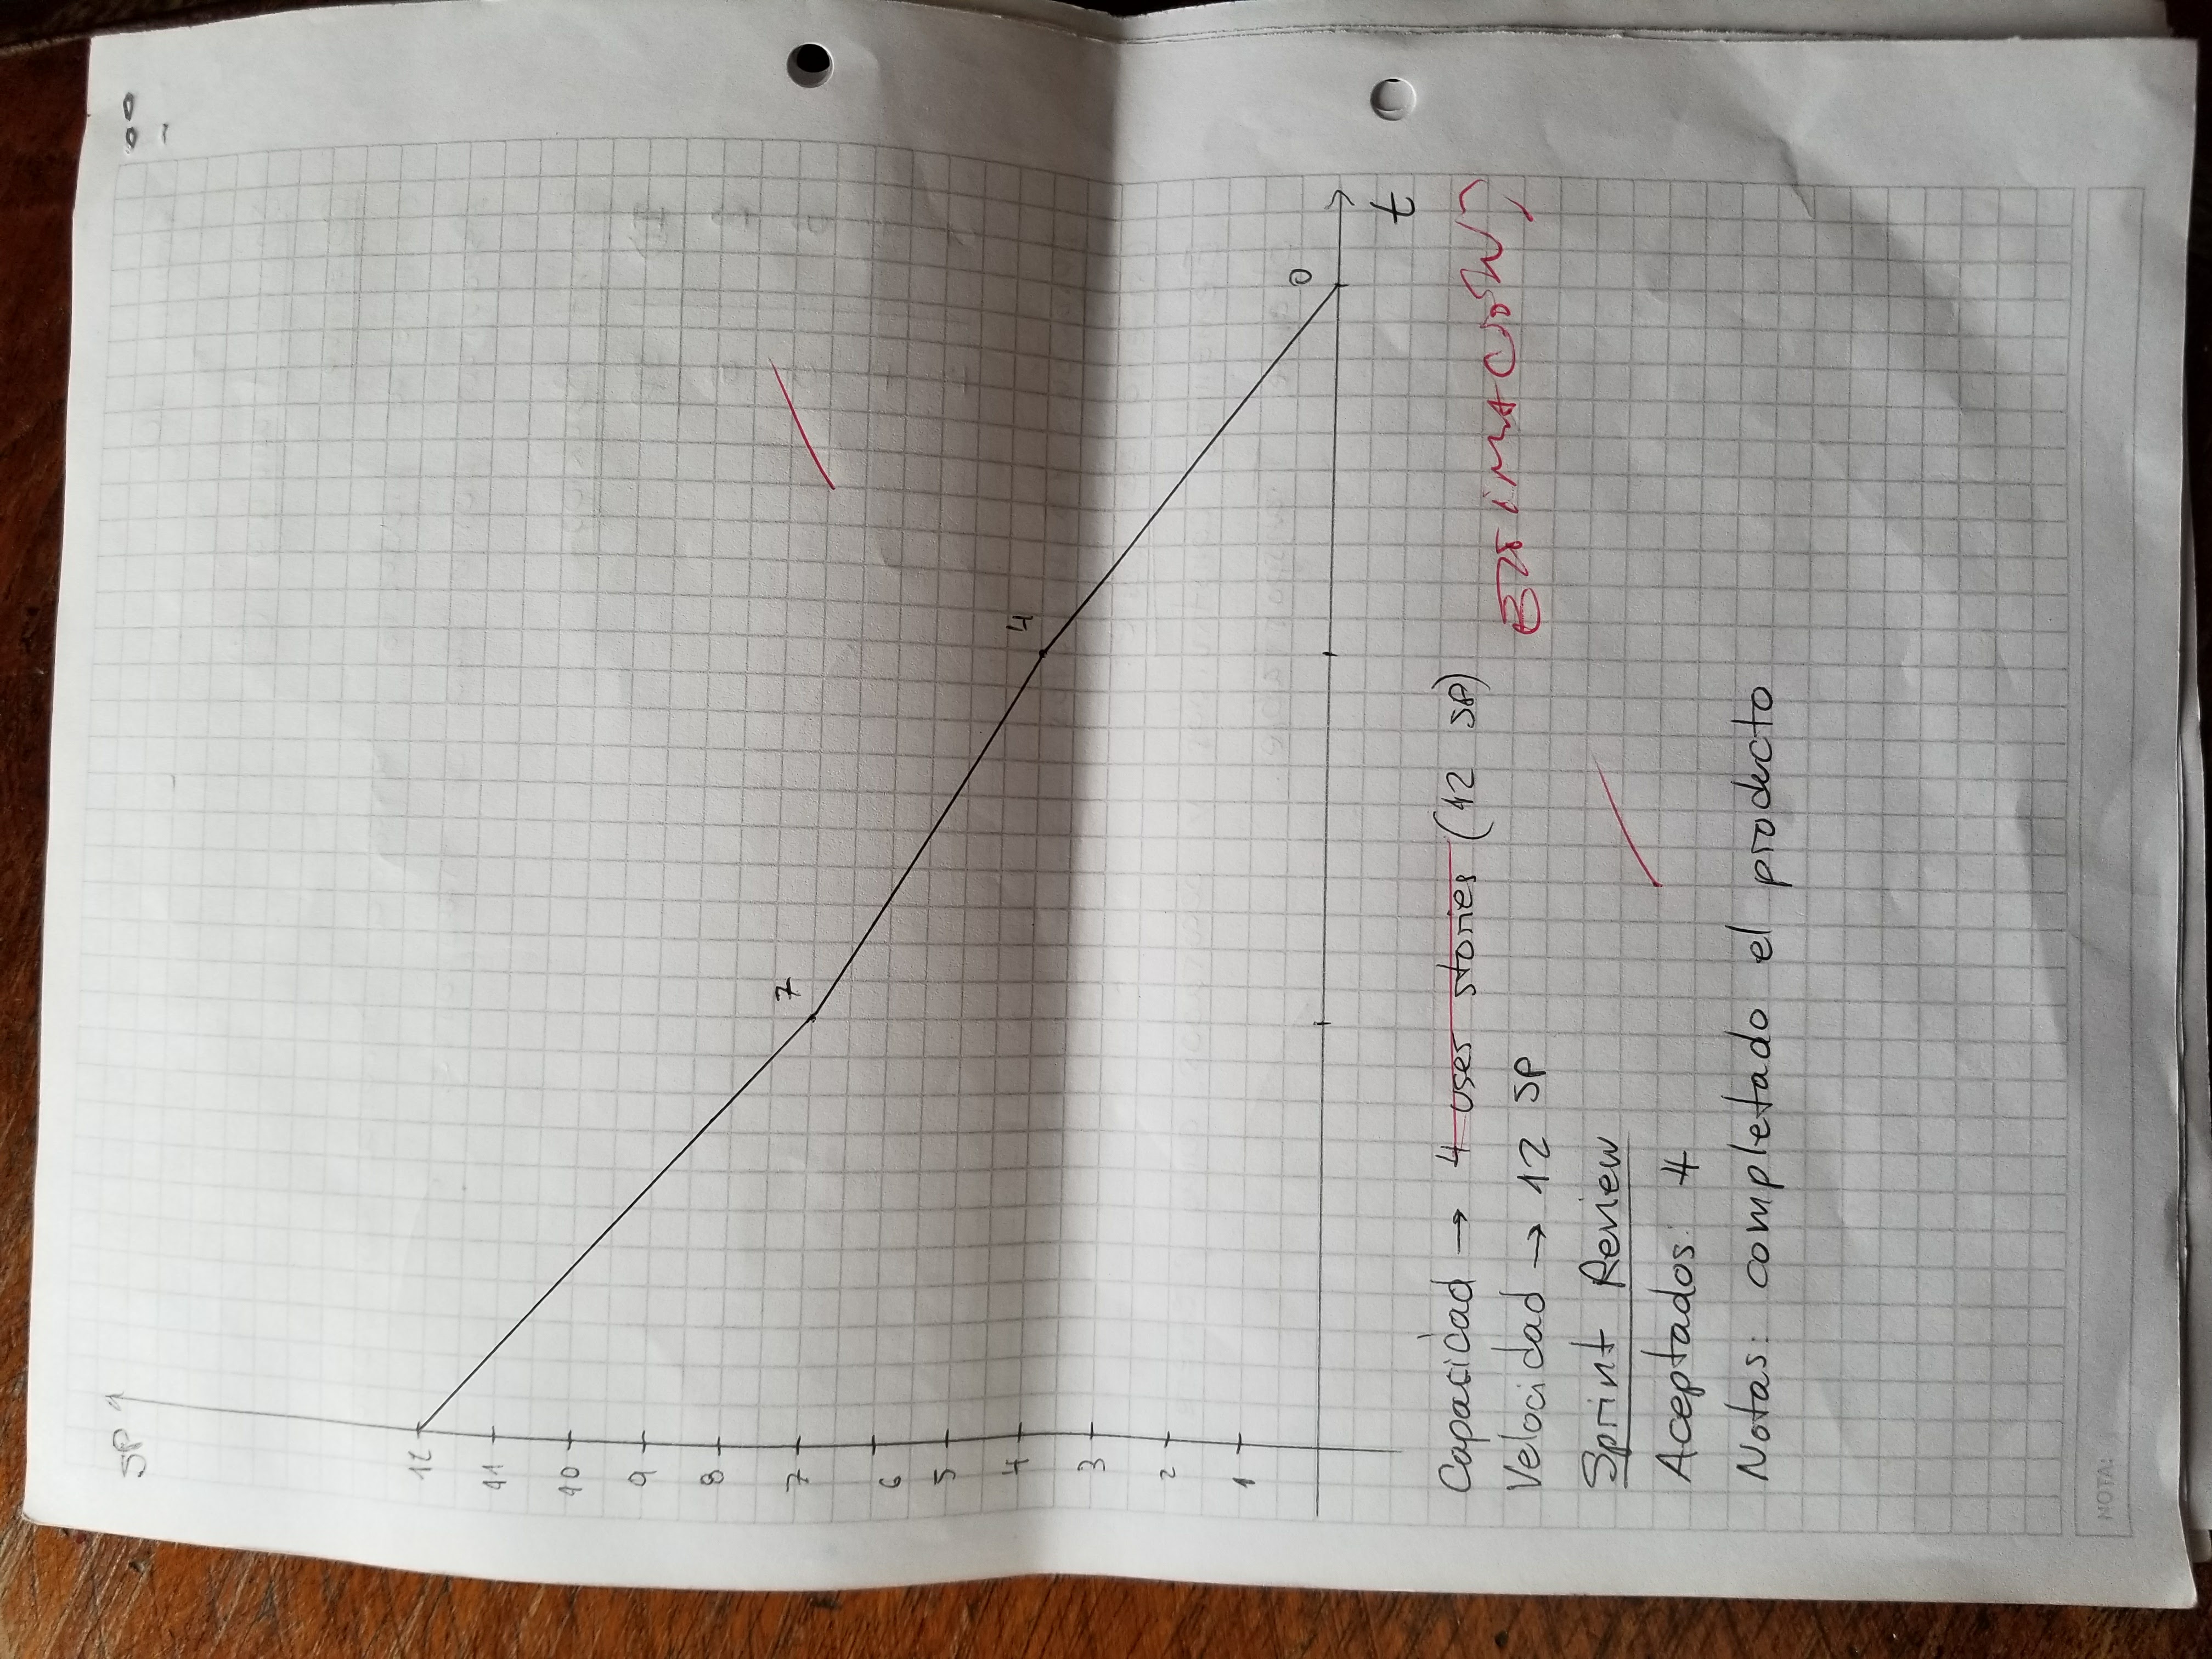 SP
12
11
10
9
8
7
7
6
5
4
4
3
2
1
0
t
Capacidad → 4 user stories (12 SP)
ESTIMACIÓN?
Velocidad → 12 SP
Sprint Review
Aceptados: 4
Notas: completado el producto
NOTA: